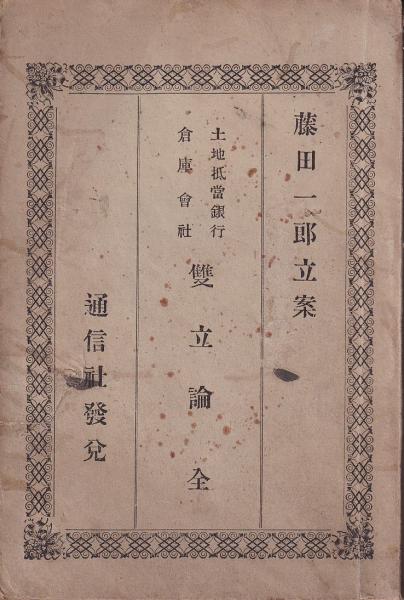 藤田一郎立案
土地抵當銀行
倉庫會社
雙立論 全
通信社發兌